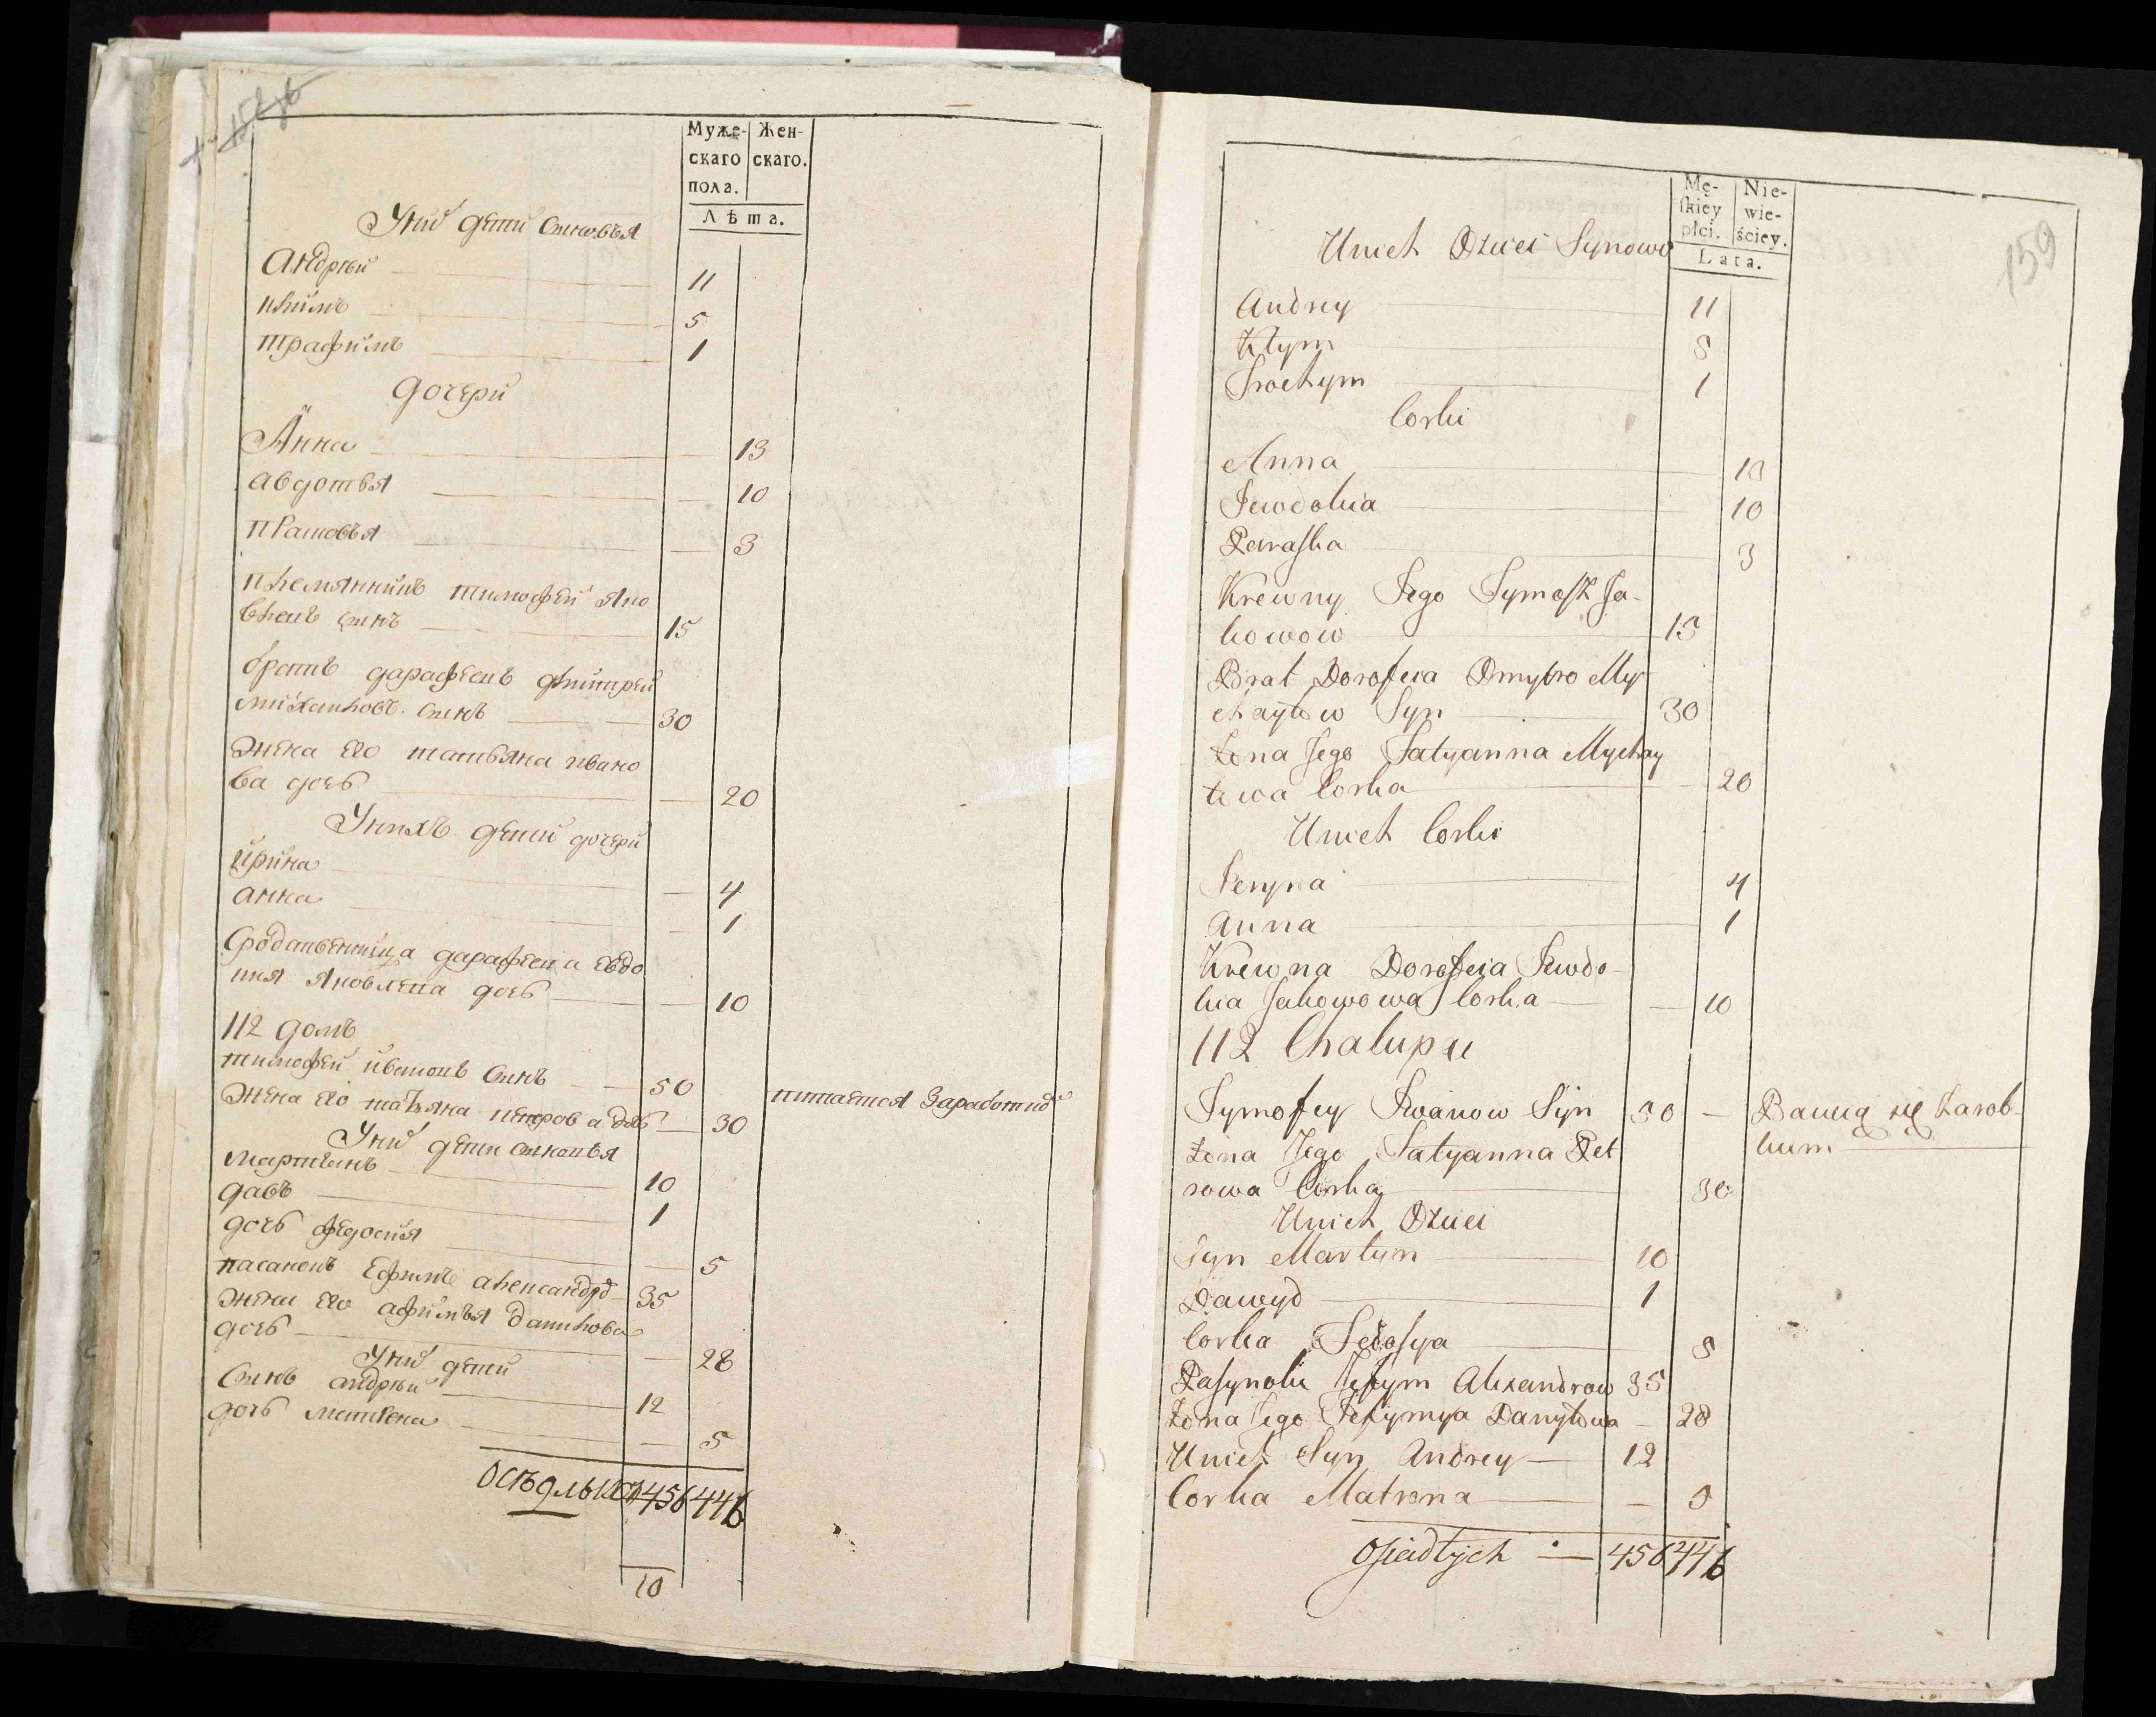 Муже- Жен-
скаго скаго.
пола.
Лѣта.
Унихъ дети синовья
Андрей 11
Климъ 5
трафимъ 1
дочери
Анна 13
авдотья 10
праськовья 3
племянникъ тимофей яко
влевъ синъ 15
братъ дарафеевъ дмитрей
михаиловъ синъ 30
жена его татьяна ивано
ва дочь 20
Унихъ детей дочери
ирина 4
анна 1
Сродственница дарафеева евдо
кия яковлева дочь 10
112 домъ
тимофей ивановъ синъ 50 питается Заработкомъ
жена его татьяна петрова дочь 30
Унихъ дети синовья
мартынъ 10
давъ 1
дочь федосия 5
пасанокъ Ефимъ александро 35
жена его афимья данилова
дочь 28
Унихъ детей
Синъ андрей 12
дочь матрена 5
Осѣдлыхъ 456 446
10
159
Mę- Nie-
skiey wie-
płci. ściey.
Lata.
Unich Dzieci Synowo
Andrey 11
Kłym 5
Trochym 1
Corki
Anna 13
Jewdokia 10
Paraska 3
Krewny Jego Tymosz Ja-
kowow 15
Brat Dorofeia Dmytro My
chayłow Syn 30
Zona Jego Tatyanna Mychay
łowa Corka 20
Unich Corki
Jeryna 4
Anna 1
Krewna Dorofeia Jewdo-
kia Jakowowa Corka 10
112 Chalupa
Tymofey Iwanow Syn 50 Bawią się Zarob-
kiem
Zona Jego Tatyanna Pet
rowa Corka 30
Unich Dzieci
Syn Martyn 10
Dawyd 1
Corka Fedosya 5
Pasynok Jefym Alixandrow 35
Zona Jego Jefymya Danyłowa 28
Unich Syn Andrey 12
Corka Matrona 5
Osiadłych 456 446